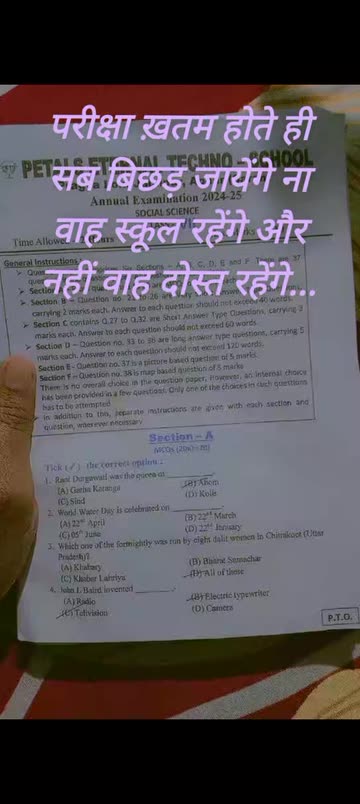 परीक्षा ख़तम होते ही
सब बिछड़ जायेंगे ना
वाह स्कूल रहेंगे और
नहीं वाह दोस्त रहेंगे...
PETALS ETERNAL TECHNO SCHOOL
Annual Examination 2024-25
SOCIAL SCIENCE
Time Allowed
General Instructions
Section B – Question no.
carrying 2 marks each. Answer to each question should not exceed 40 words.
Section C contains Q.27 to Q.32 are Short Answer Type Questions, carrying 3
marks each. Answer to each question should not exceed 60 words.
Section D – Question no. 33 to 36 are long answer type questions, carrying 5
marks each. Answer to each question should not exceed 120 words.
Section E – Question no. 37 is a picture based question of 5 marks.
Section F – Question no. 38 is map based question of 5 marks
There is no overall choice in the question paper. However, an internal choice
has been provided in a few questions. Only one of the choices in such questions
has to be attempted
In addition to this, separate instructions are given with each section and
question, wherever necessary
Section – A
MCQs
Tick (✓) the correct option :
1. Rani Durgawati was the queen of ________.
(A) Garha Katanga (B) Ahom
(C) Sind (D) Kolis
2. World Water Day is celebrated on ________.
(A) 22nd April (B) 22nd March
(C) 05th June (D) 22nd January
3. Which one of the fortnightly was run by eight dalit women in Chitrakoot (Uttar
Pradesh)?
(A) Khabary (B) Bhane Samachar
(C) Khabar Lahriya (D) All of these
4. John L Baird invented ________.
(A) Radio (B) Electric typewriter
(C) Television (D) Camera
P.T.O.